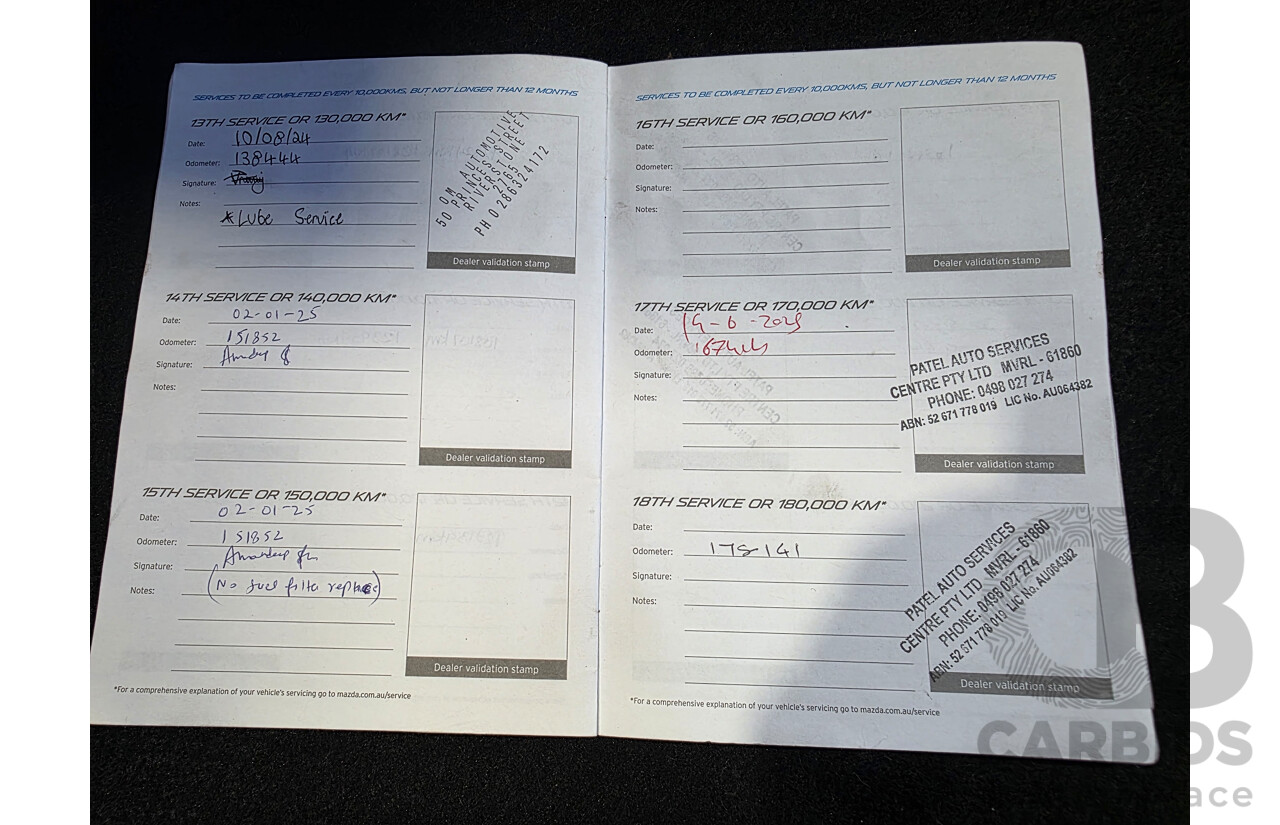 SERVICES TO BE COMPLETED EVERY 10,000KMS, BUT NOT LONGER THAN 12 MONTHS
13TH SERVICE OR 130,000 KM*
Date: 10/08/24
Odometer: 138444
Signature:
Notes:
*Lube Service
OM AUTOMOTIVE
50 PRINCES STREET
RIVERSTONE
2765
PH 0286324172
Dealer validation stamp
14TH SERVICE OR 140,000 KM*
Date: 02-01-25
Odometer: 151852
Signature:
Notes:
Dealer validation stamp
15TH SERVICE OR 150,000 KM*
Date: 02-01-25
Odometer: 151852
Signature:
Notes: (No fuel filter replace)
Dealer validation stamp
*For a comprehensive explanation of your vehicle's servicing go to mazda.com.au/service
SERVICES TO BE COMPLETED EVERY 10,000KMS, BUT NOT LONGER THAN 12 MONTHS
16TH SERVICE OR 160,000 KM*
Date:
Odometer:
Signature:
Notes:
Dealer validation stamp
17TH SERVICE OR 170,000 KM*
Date:
Odometer:
Signature:
Notes:
PATEL AUTO SERVICES
CENTRE PTY LTD MVRL - 61860
PHONE: 0498 027 274
ABN: 52 671 778 019 LIC No. AU064382
Dealer validation stamp
18TH SERVICE OR 180,000 KM*
Date:
Odometer:
Signature:
Notes:
PATEL AUTO SERVICES
CENTRE PTY LTD MVRL - 61860
PHONE: 0498 027 274
ABN: 52 671 778 019 LIC No. AU064382
Dealer validation stamp
*For a comprehensive explanation of your vehicle's servicing go to mazda.com.au/service